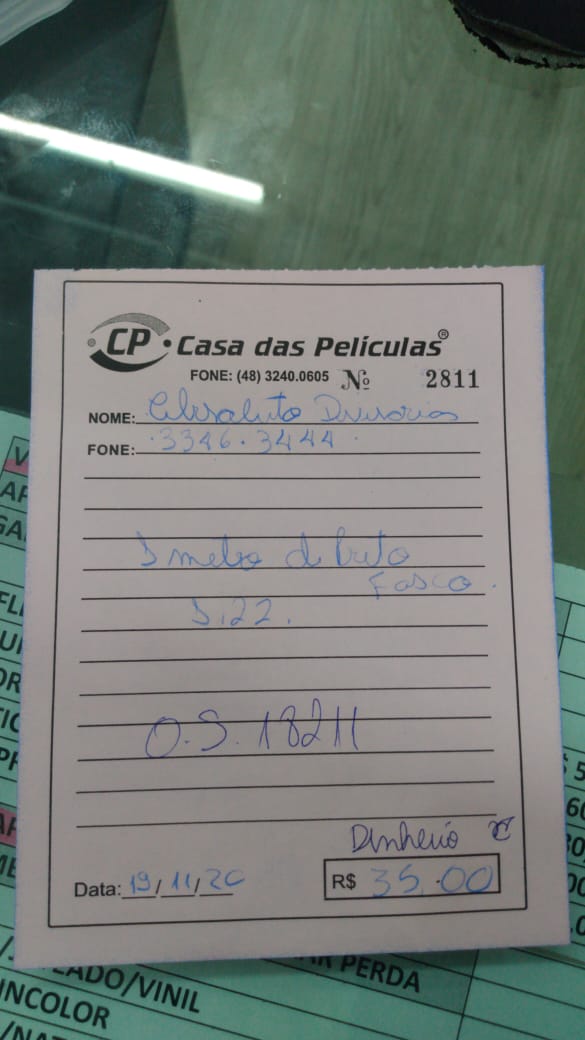 CP Casa das Películas®
FONE: (48) 3240.0605 Nº 2811
NOME: Divisorias
FONE: 3346.3444
1 metro de Preto
Fosco.
1.22.
O.S. 18211
Dinheiro
Data: 19/11/20 R$ 35.00
AR PERDA
ADO/VINIL
INCOLOR